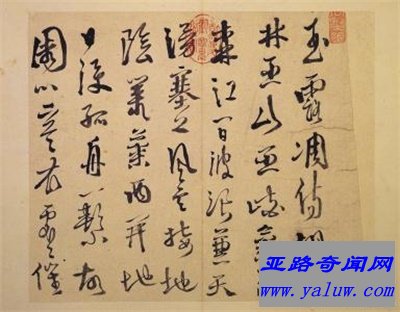 玉露凋傷
林巫山巫峽氣
森江間波浪兼天
湧塞上風雲接地
陰叢菊兩開他
日淚孤舟一繫故
園心寒衣處處催
亚路奇闻网
www.yaluw.com